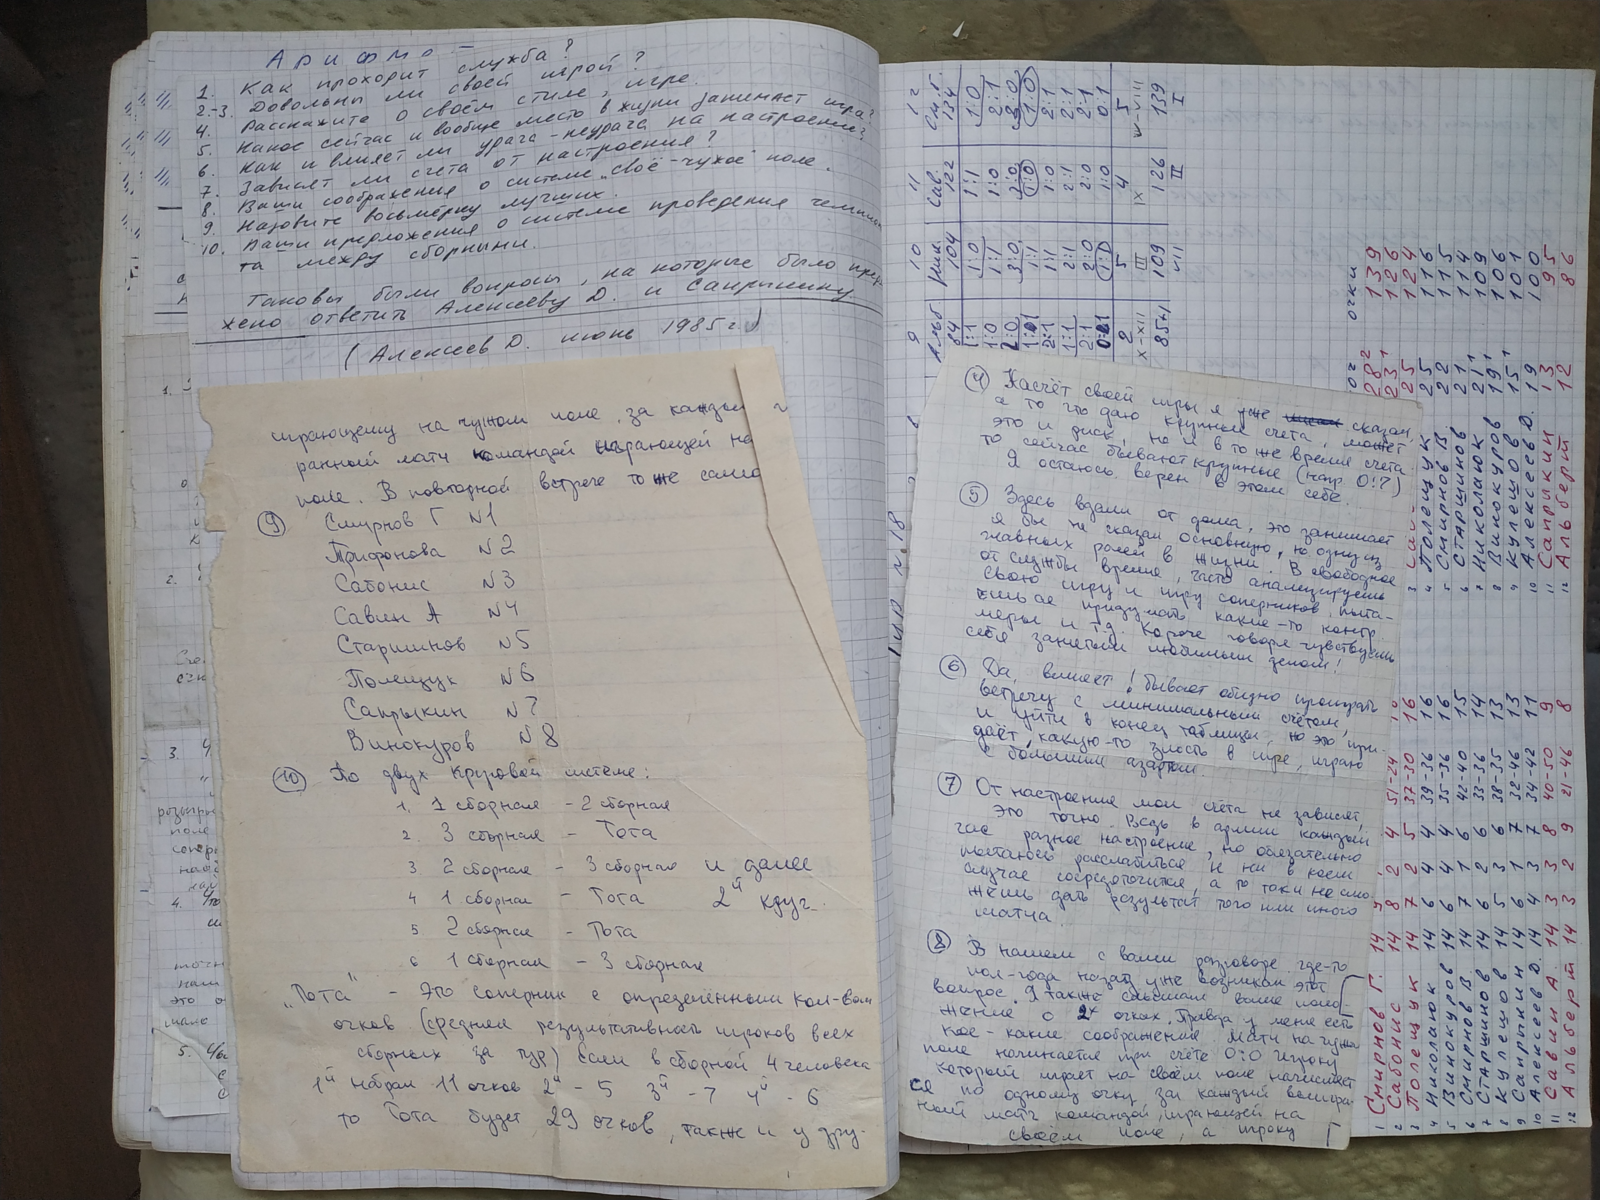 Арифмо-
1. Как проходит служба?
2.-3. Довольны ли своей игрой?
4. Расскажите о своём стиле, игре.
5. Какое сейчас и вообще место в жизни занимает игра?
6. Как и влияет ли удача-неудача на настроение?
7. Зависят ли счета от настроения?
8. Ваши соображения о системе „своё-чужое" поле.
9. Назовите восьмёрку лучших.
10. Ваши предложения о системе проведения чемпион
та между сборными.
Таковы были вопросы, на которые было пред
жено ответить Алексееву Д. и Сапрыкину
(Алексеев Д. июнь 1985 г.)
играющему на чужом поле, за каждый
ранный матч командой играющей на
поле. В повторной встрече то же само
9 Смирнов Г №1
Трифонова №2
Сабонис №3
Савин А №4
Старшинов №5
Полещук №6
Сапрыкин №7
Винокуров №8
10 По двух круговой системе:
1. 1 сборная - 2 сборная
2. 3 сборная - Тота
3 2 сборная - 3 сборная и далее
4 1 сборная - Тота 2й круг.
5 2 сборная - Тота
6 1 сборная - 3 сборная
„Тота" - это соперник с определённым кол-вом
очков (средняя результативность игроков всех
сборных за тур) Если в сборной 4 человека
1й набрал 11 очков 2й - 5 3й - 7 4й - 6
то Тота будет 29 очков, также и у дру-
4 Насчёт своей игры я уже сказал,
а то что даю крупные счета, может
это и риск, но и в то же время счета
то сейчас бывают крупные (напр. 0:7)
Я остаюсь верен в этом себе.
5 Здесь вдали от дома, это занимает
я бы не сказал основную, но одну из
главных ролей в жизни. В свободное
от службы время, часто анализируешь
свою игру и игру соперников, пыта-
ешься придумать какие-то контр
меры и т.д. Короче говоря чувствуешь
себя занятым любимым делом!
6 Да, влияет! бывает обидно проиграть
встречу с минимальным счётом,
и уйти в конец таблицы, но это при-
даёт какую-то злость в игре, играю
с большим азартом.
7 От настроение мои счёта не зависят,
это точно. Ведь в армии каждый
час разное настроение, но обязательно
пытаюсь расслабиться и ни в коем
случае сосредоточится, а то так и не смо
жешь дать результат того или иного
матча.
8 В нашем с вами разговоре где-то
пол-года назад уже возникал этот
вопрос. Я также слышал ваше поло-
жение о 2х очках. Правда у меня есть
кое-какие соображения. Матч на чужом
поле начинается при счёте 0:0 игроку
который играет на своём поле начисляет
ся по одному очку, за каждый выигра
ный матч командой, играющей на
своём поле, а игроку
9 10 11 12
Альб Ник. Сав. См.Г.
84 104 122 134
1:1 1:0 1:1 1:0
1:0 1:1 1:0 2:1
2:0 3:0 2:0 3:0
1:1 1:0 1:0
2:1 1:1 1:0 2:1
1:1 2:1 2:1 2:1
2:1 2:0 2:0 2:1
1:0 1:0 0:1
2 5 4 5
X-XII III IX V-VIII
85+1 109 126 139
VII II I
1 Смирнов Г. 14 28 2 139
2 Сабонис 14 8 2 4 51-24 23 1 126
3 Полещук 14 7 2 5 37-30 16 25 124
4 Николаюк 14 6 4 4 39-36 16
5 Винокуров 14 6 4 4 35-36 16
6 Смирнов В 14 7 1 6 42-40 15
7 Старшинов 14 6 2 6 33-36 14
8 Кулешов 14 5 3 6 38-35 13
9 Сапрыкин 14 6 1 7 32-46 13
10 Алексеев Д. 14 4 3 7 34-42 11
11 Савин А. 14 3 3 8 40-50 9
12 Альберт 14 3 2 9 21-46 8
оч очки
4 Полещук 25 116
5 Смирнов В 22 115
6 Старшинов 21 114
7 Николаюк 21 1 109
8 Винокуров 19 1 106
9 Кулешов 15 1 101
10 Алексеев Д. 19 100
11 Сапрыкин 13 95
12 Альберт 12 86